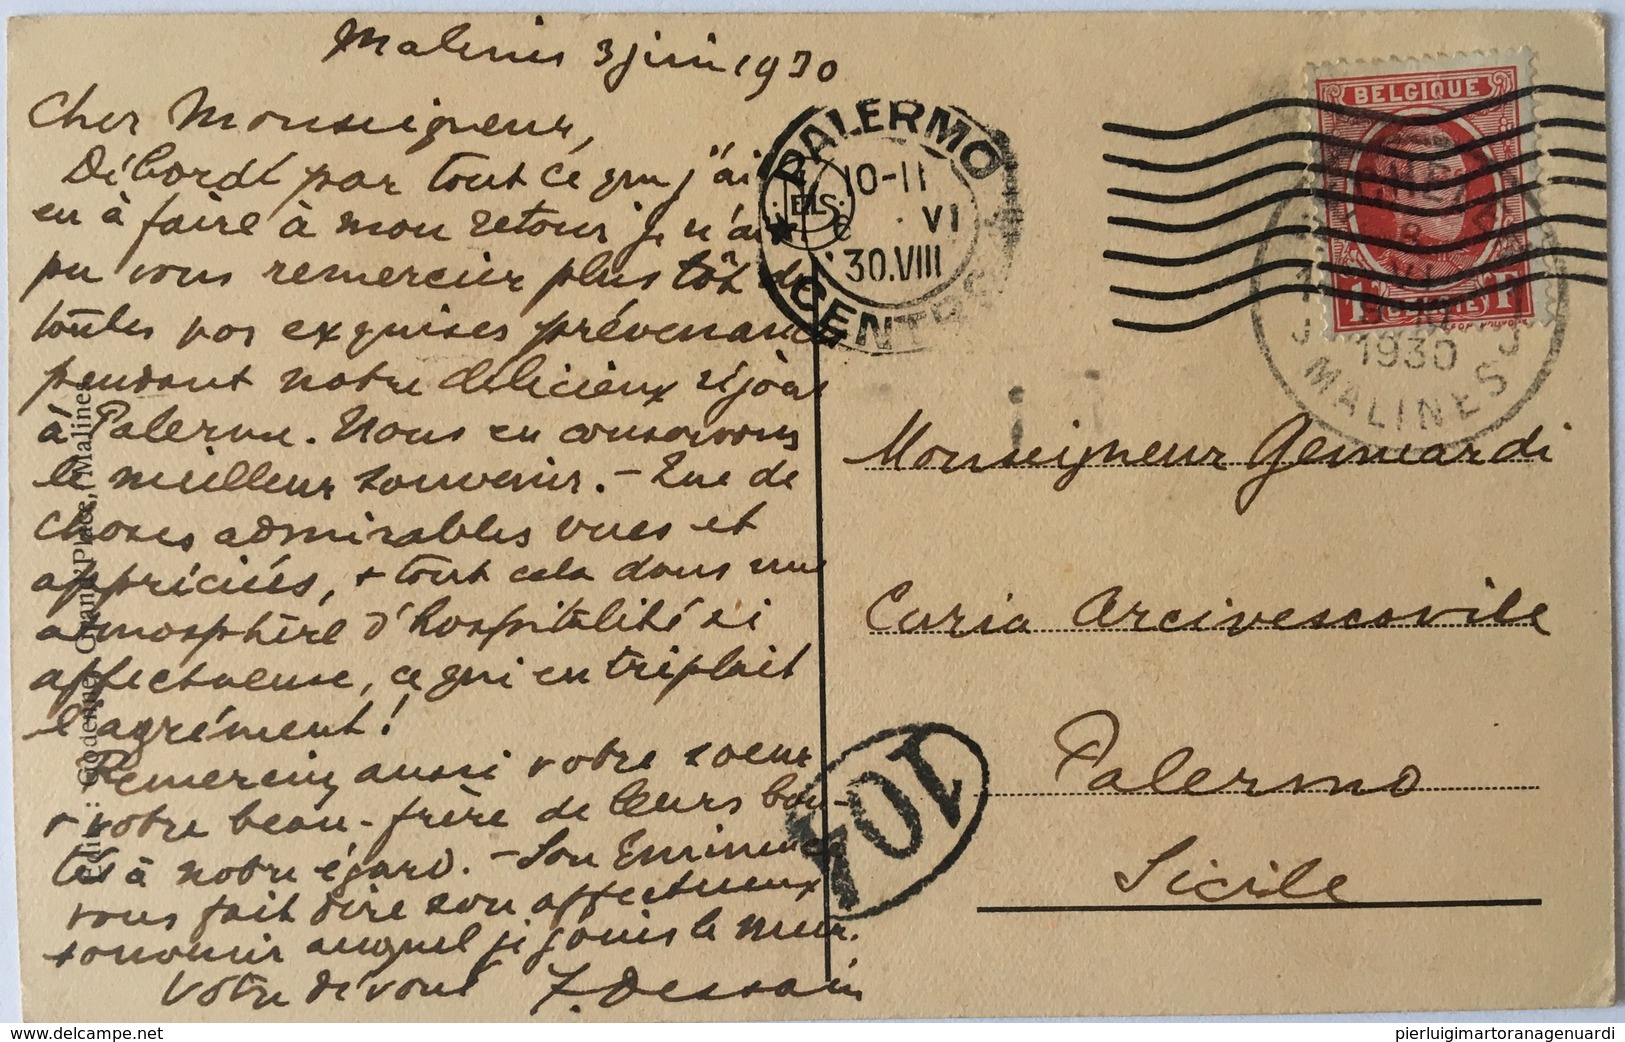 Malines 3 juin 1930
Cher Monseigneur,
Débordé par tout ce que j'ai
eu à faire à mon retour je n'ai
pu vous remercier plus tôt de
toutes vos exquises prévenances
pendant notre délicieux séjour
à Palerme. Nous en conservons
le meilleur souvenir. – Que de
choses admirables vues et
appréciées, + tout cela dans une
atmosphère d'hospitalité si
affectueuse, ce qui en triplait
l'agrément!
Remerciez aussi votre soeur
+ votre beau-frère de leurs bon-
tés à notre égard. – Son Eminence
vous fait dire son affectueux
souvenir auquel je joins le mien.
Votre dévoué J. Dessain
Malines
PALERMO
CENTRO
10-11
VI
30.VIII
BELGIQUE
1 F
1930
MALINES
J J
Monseigneur Genuardi
Curia Arcivescovile
Palermo
Sicile
104
www.delcampe.net
pierluigimartoranagenuardi